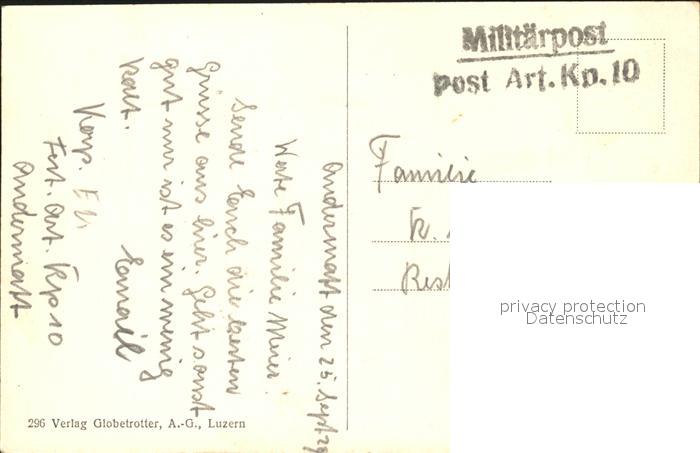 Militärpost
post Art. Kp. 10
Andermatt den 25. Sept
Werte Familie Meier!
Sende Euch die besten
Grüsse aus hier. Geht sonst
gut nur ist es ein wenig
kalt.
Emil
Korp.
Fest. Art. Kp 10
Andermatt
Familie
K.
Rest
privacy protection
Datenschutz
296 Verlag Globetrotter, A.-G., Luzern